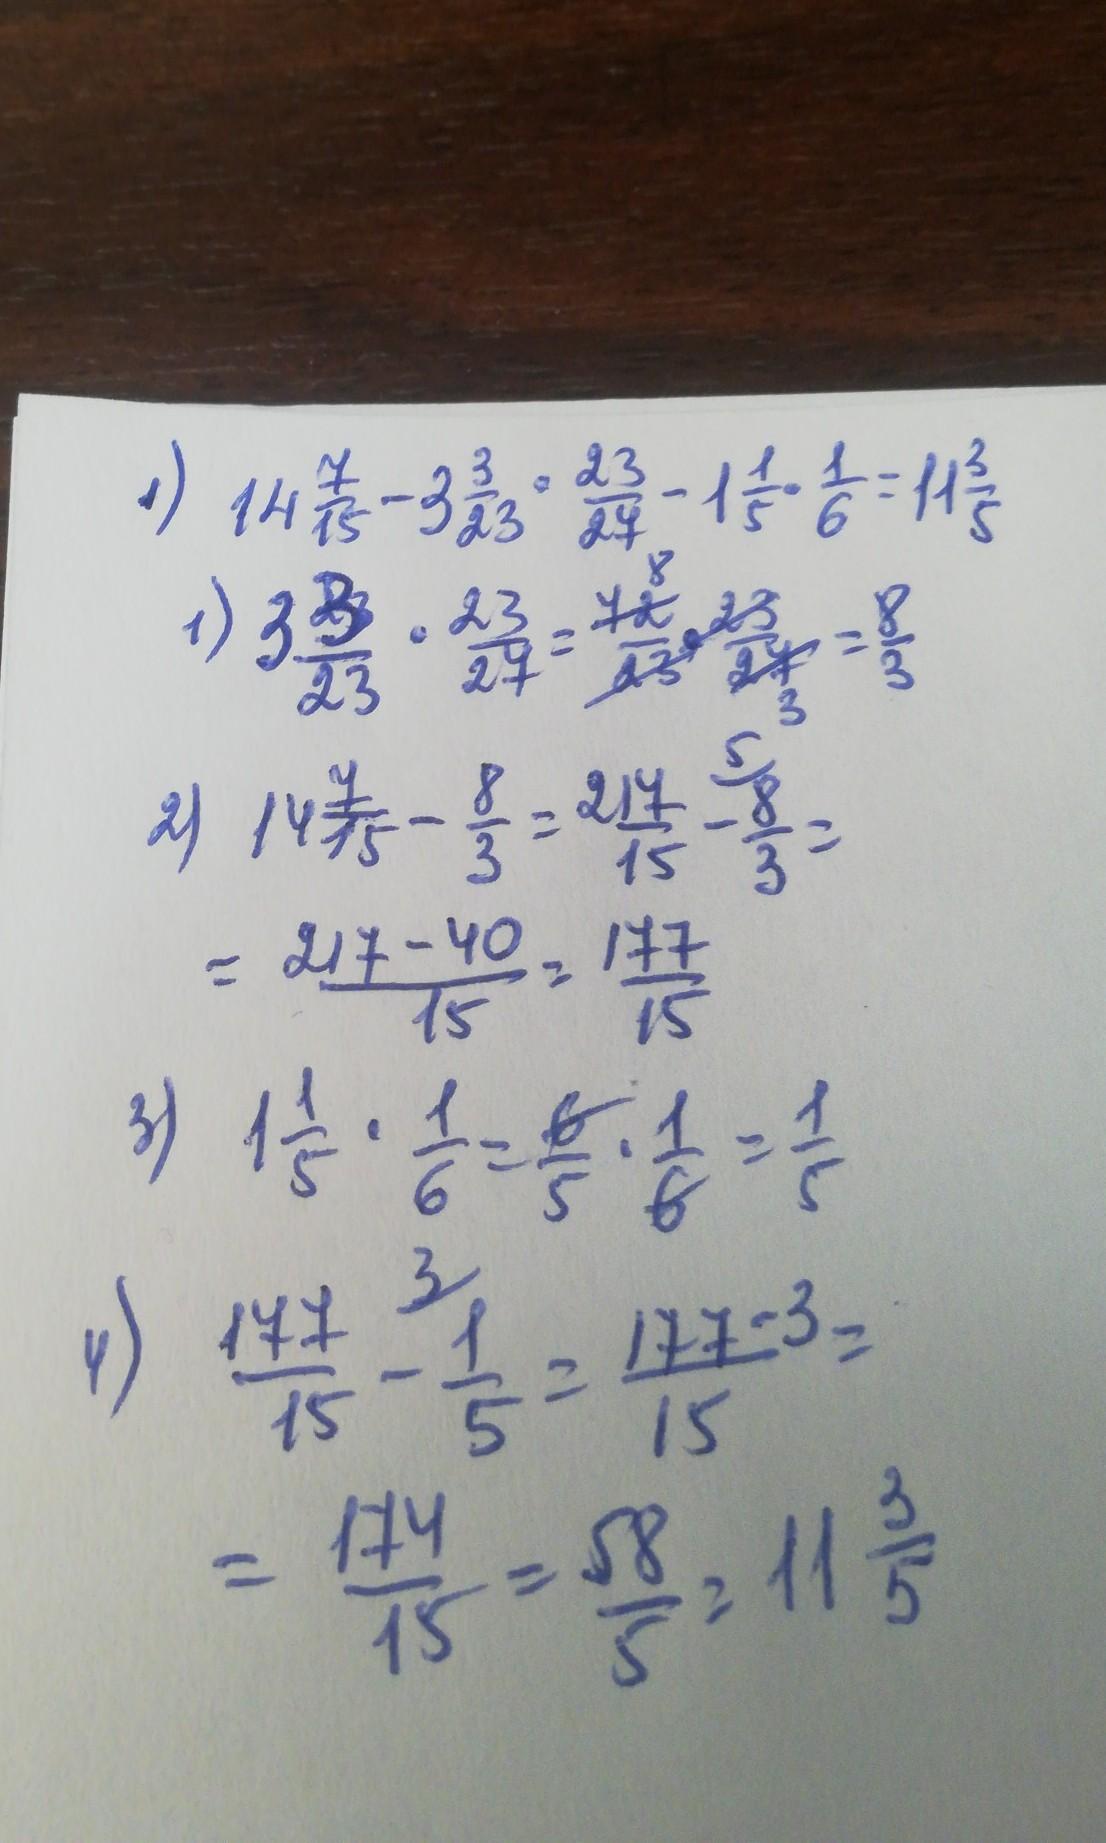 1) 14 7/15 - 3 3/23 · 23/27 - 1 1/5 · 1/6 = 11 3/5
1) 3 3/23 · 23/27 = 72/23 · 23/27 = 8/3
8
3
2) 14 7/15 - 8/3 = 217/15 - 8/3 =
5
= 217-40/15 = 177/15
3) 1 1/5 · 1/6 = 6/5 · 1/6 = 1/5
4) 177/15 - 1/5 = 177-3/15 =
3
= 174/15 = 58/5 = 11 3/5